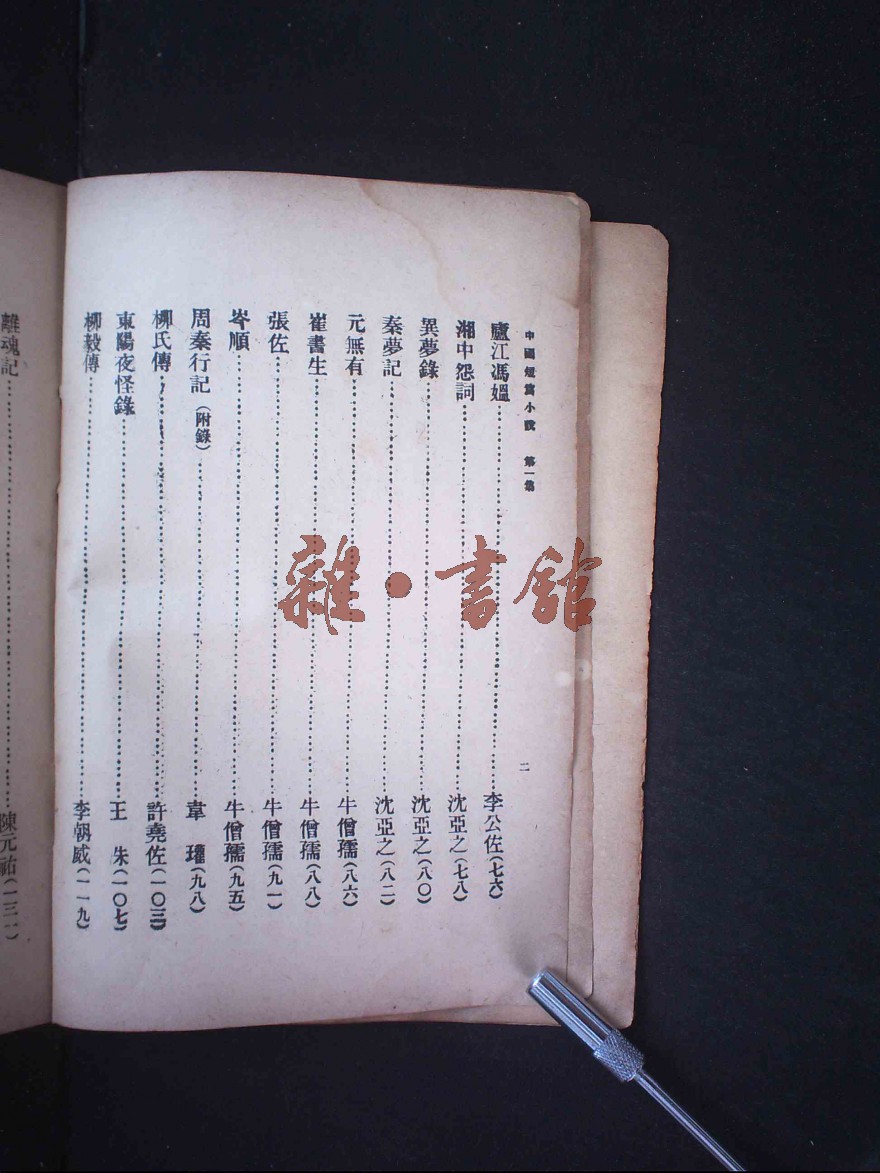 中國短篇小說　第一集
二
廬江馮媼……李公佐(七六)
湘中怨詞……沈亞之(七八)
異夢錄……沈亞之(八〇)
秦夢記……沈亞之(八二)
元無有……牛僧孺(八六)
崔書生……牛僧孺(八八)
張佐……牛僧孺(九一)
岑順……牛僧孺(九五)
周秦行記(附錄)……韋　瓘(九八)
柳氏傳……許堯佐(一〇三)
東陽夜怪錄……王　朱(一〇七)
柳毅傳……李朝威(一一九)
離魂記……陳元祐
雜·書館